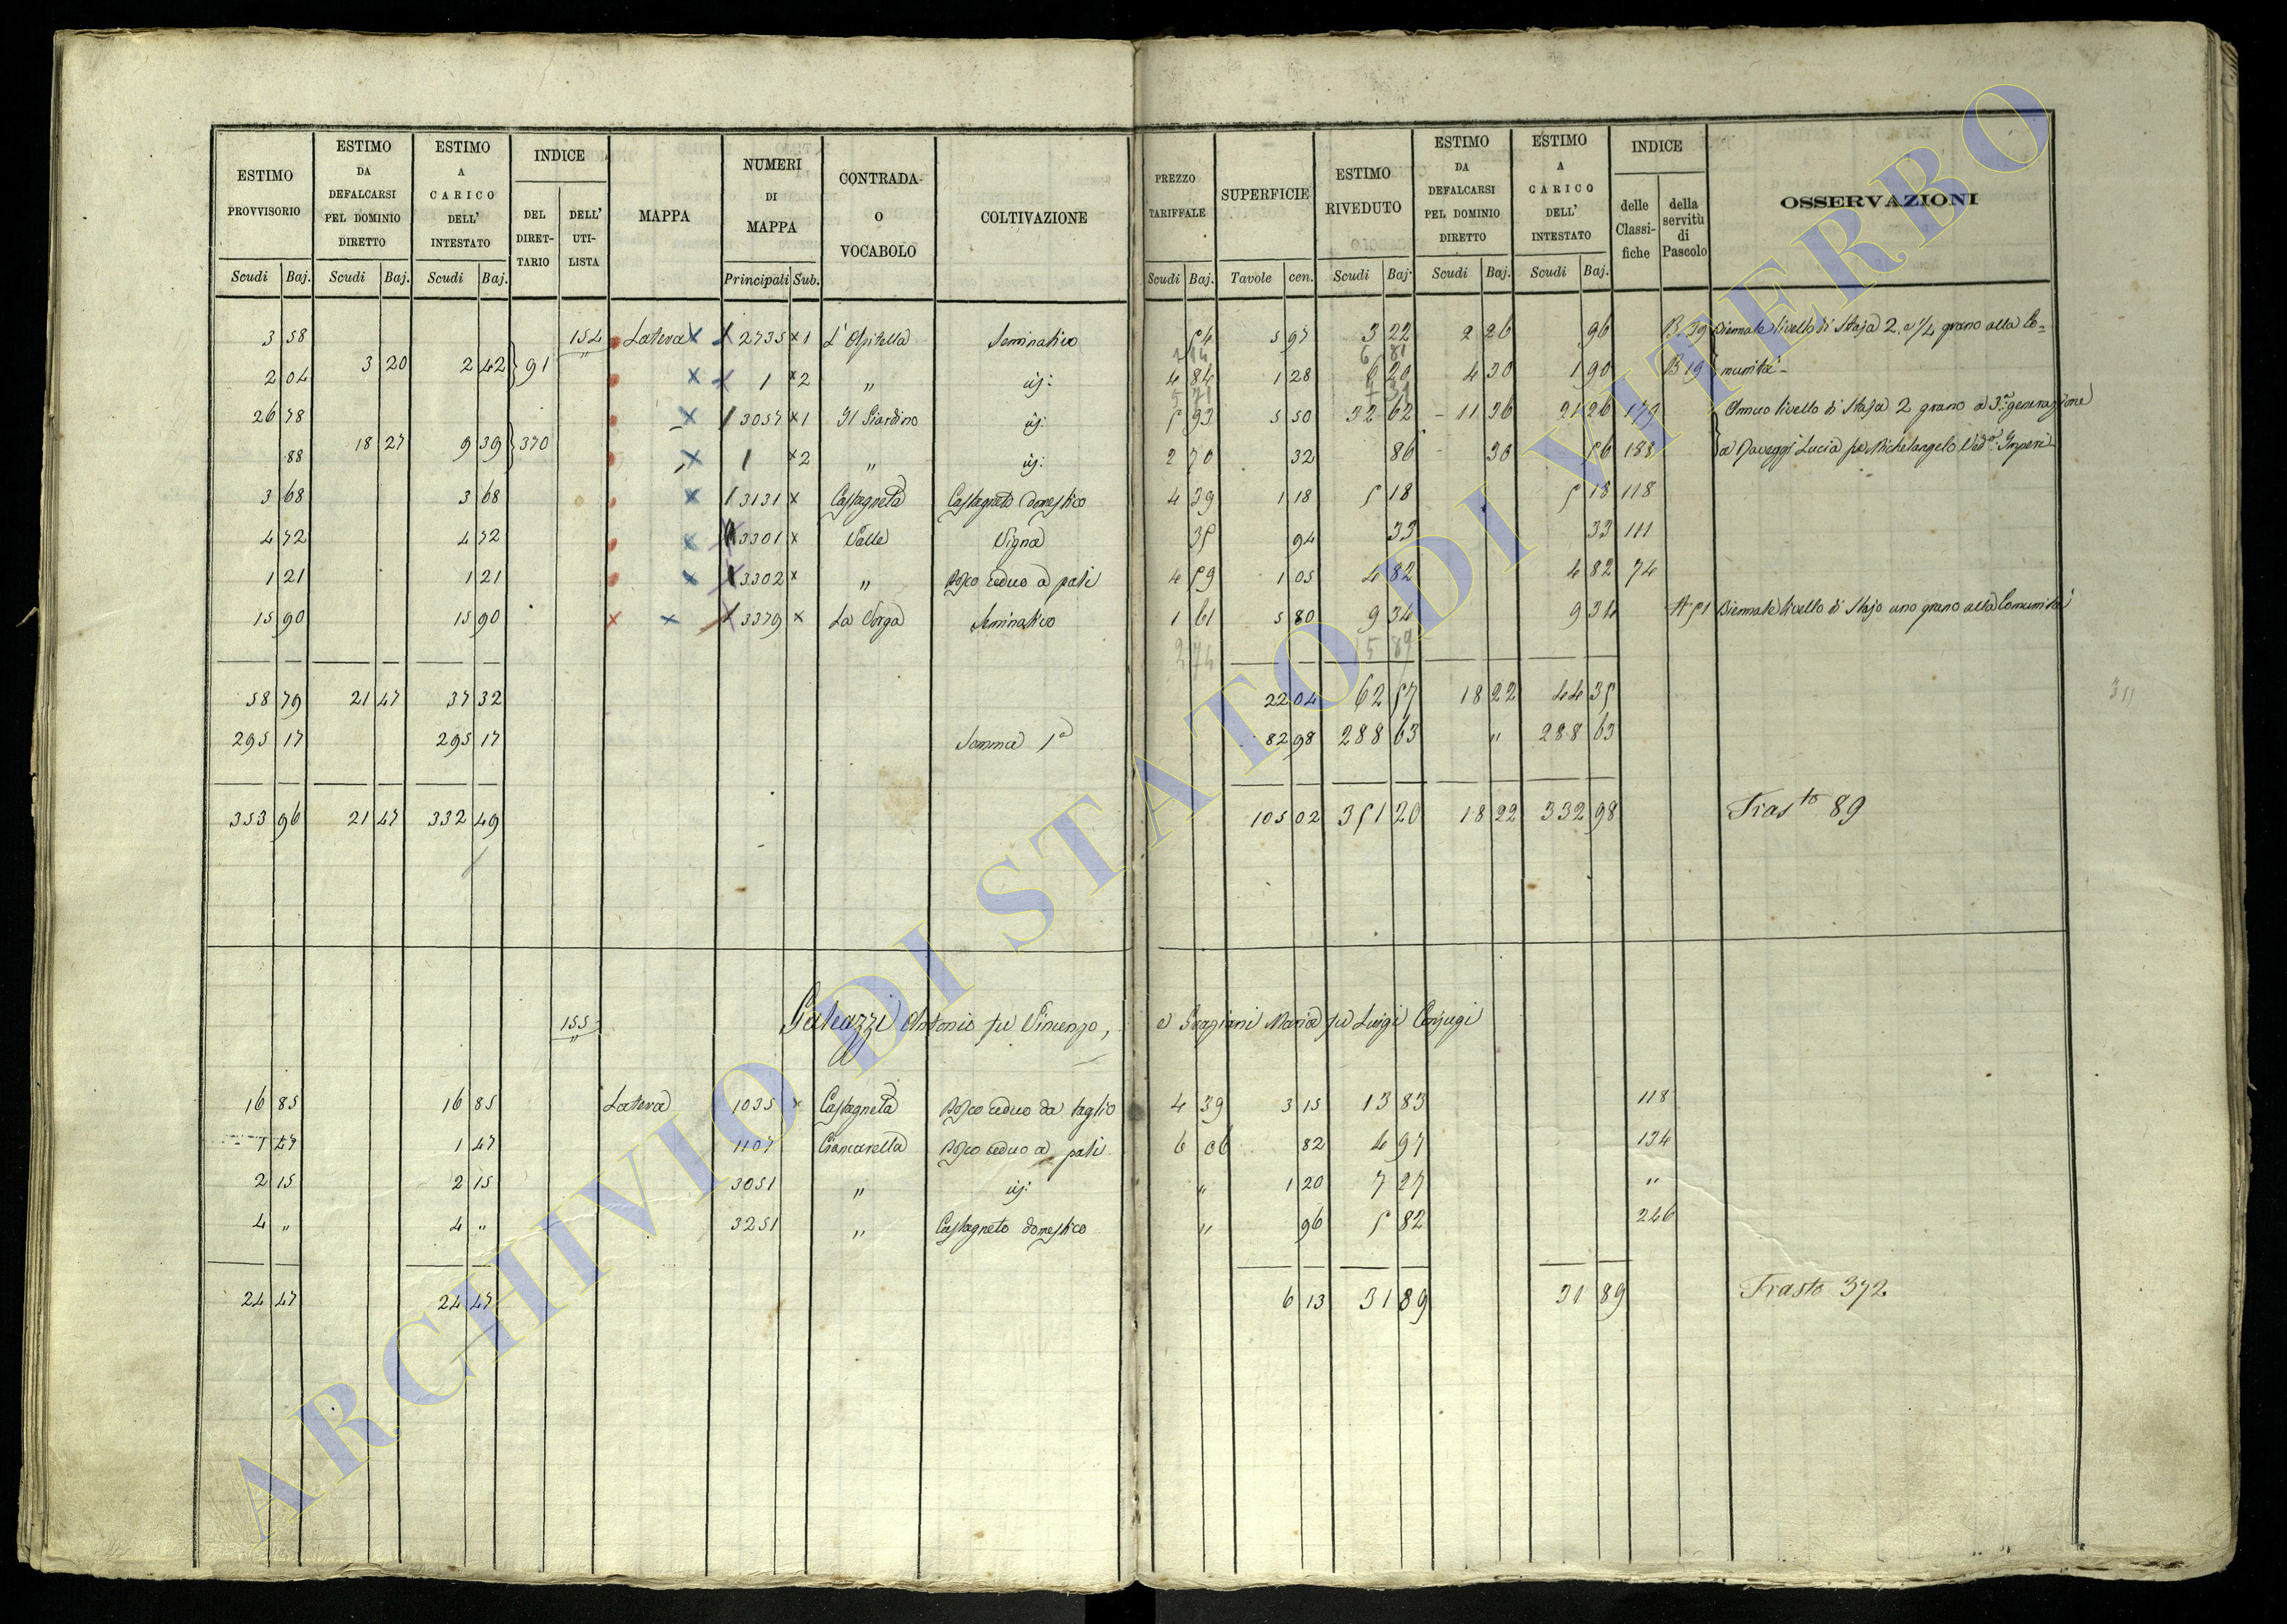 ESTIMO PROVVISORIO | ESTIMO DA DEFALCARSI PEL DOMINIO DIRETTO | ESTIMO A CARICO DELL' INTESTATO | INDICE | MAPPA | NUMERI DI MAPPA | CONTRADA O VOCABOLO | COLTIVAZIONE | PREZZO TARIFFALE | SUPERFICIE | ESTIMO RIVEDUTO | ESTIMO DA DEFALCARSI PEL DOMINIO DIRETTO | ESTIMO A CARICO DELL' INTESTATO | INDICE | OSSERVAZIONI
DEL DIRETTARIO | DELL' UTILISTA | delle Classifiche | della servitù di Pascolo
Scudi | Baj. | Scudi | Baj. | Scudi | Baj. | Principali | Sub. | Scudi | Baj. | Tavole | cen. | Scudi | Baj. | Scudi | Baj. | Scudi | Baj.
3 58 | 154 | Latera x | 2735 x 1 | L' Ospitella | Seminativo | 54 | 5 97 | 3 22 | 2 26 | 96 | B 39 | Biennale livello di Staja 2. e 1/4 grano alla Co=
3 20 | 2 42 | 91
2 04 | x | 1 x 2 | " | id: | 4 84 | 1 28 | 6 20 | 4 30 | 1 90 | B 19 | munità
26 78 | x | 3057 x 1 | Il Giardino | id: | 5 93 | 5 50 | 32 62 | 11 36 | 21 26 | Annuo livello di Staja 2 grano a 3.a generazione
18 27 | 9 39 | 370
88 | x | 1 x 2 | " | id: | 2 70 | 32 | 86 | 30 | 56 | 188 | a Lucia fu Michelangelo Ved.a
3 68 | 3 68 | x | 3131 x | Castagneta | Castagneto domestico | 4 39 | 1 18 | 5 18 | 5 18 | 118
4 72 | 4 72 | x | 3301 x | Valle | Vigna | 35 | 94 | 33 | 33 | 111
1 21 | 1 21 | x | 3302 x | " | Bosco ceduo a pali | 4 59 | 1 05 | 4 82 | 4 82 | 74
15 90 | 15 90 | x x | 3379 x | La | Seminativo | 1 61 | 5 80 | 9 34 | 9 34 | A 51 | Biennale livello di Stajo uno grano alla Comunità
2 74 | 15 89
58 79 | 21 47 | 37 32 | 22 04 | 62 57 | 18 22 | 44 35
295 17 | 295 17 | Somma 1a | 82 98 | 288 63 | " | 288 63
353 96 | 21 47 | 332 49 | 105 02 | 351 20 | 18 22 | 332 98 | Trasto 89
155 | Galeazzi Antonio fu Vincenzo, e Graziani Maria fu Luigi Conjugi
16 85 | 16 85 | Latera | 1035 x | Castagneta | Bosco ceduo da taglio | 4 39 | 3 15 | 13 83 | 118
1 47 | 1 47 | 1107 | Ciancarella | Bosco ceduo a pali | 6 06 | 82 | 4 97 | 134
2 15 | 2 15 | 3051 | " | id: | " | 1 20 | 7 27 | "
4 " | 4 " | 3251 | " | Castagneto domestico | " | 96 | 5 82 | 246
24 47 | 24 47 | 6 13 | 31 89 | 31 89 | Trasto 372
ARCHIVIO DI STATO DI VITERBO